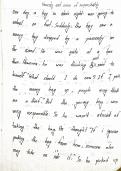 Honesty and sense of responsibility
One day a boy in black night was going to
school on foot. Suddenly the boy saw a
money bag dropped by a passerby on
the road. He was quite at a loss
how However, he was thinking to
himself "What should I do now? If I pick
the money bag up, people may think
me a thief." But the young boy was
very responsible. So he instead of
taking the bag, he thought "If I ignore
picking the bag from here, someone else
may take on it". So he picked up